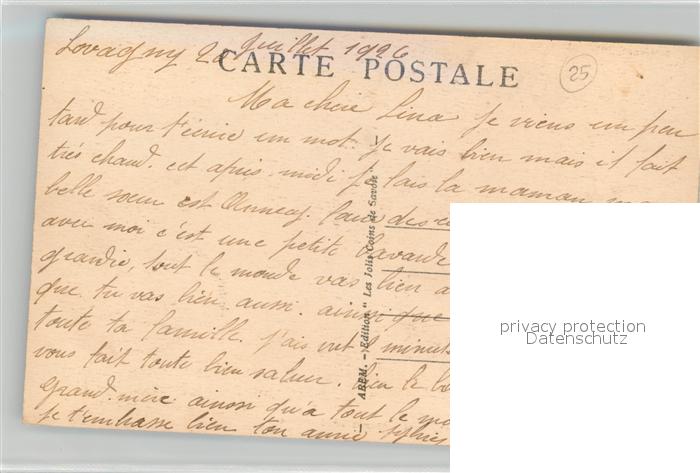 Lovagny 2 Juillet 1926
CARTE POSTALE
25
Ma chère Lina Je viens un peu
tard pour t'écrire un mot. Je vais bien mais il fait
très chaud. cet après-midi je fais la maman
belle sœur est Annecy.
avec moi c'est une petite bavarde
grandie, tout le monde vas bien
que tu vas bien aussi. ainsi que
toute ta famille. J'ais
vous fait toute bien saluer. bien le
grand-mère ainsi qu'à tout le
Je t'embrasse bien ton amie
AREM. - Edition "Les Jolis Coins de Savoie"
privacy protection
Datenschutz